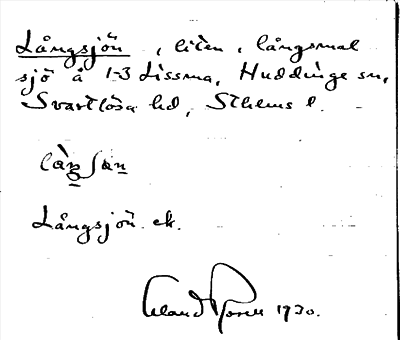 Långsjön, liten, långsmal
sjö å 1-3 Lissma, Huddinge sn,
Svartlösa hd, Sthlms l.
Långsjön. ek.
1930.